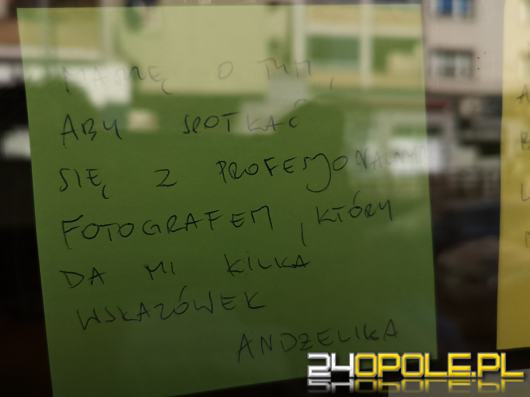 MARZĘ O TYM,
ABY SPOTKAĆ
SIĘ Z PROFESJONALNYM
FOTOGRAFEM, KTÓRY
DA MI KILKA
WSKAZÓWEK
ANDŻELIKA
24OPOLE.PL